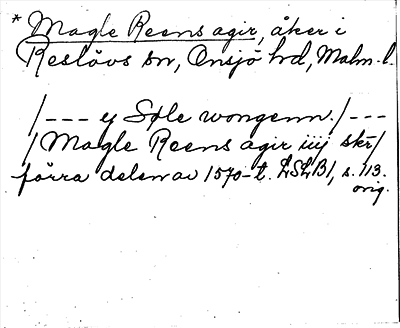 * Magle Reens agir, åker i
Reslövs sn, Onsjö hd, Malm. l.
/--- y Søle wongenn./---
/Magle Reens agir iiij skr/
förra delen av 1570-t. LSLB1, s. 113.
orig.